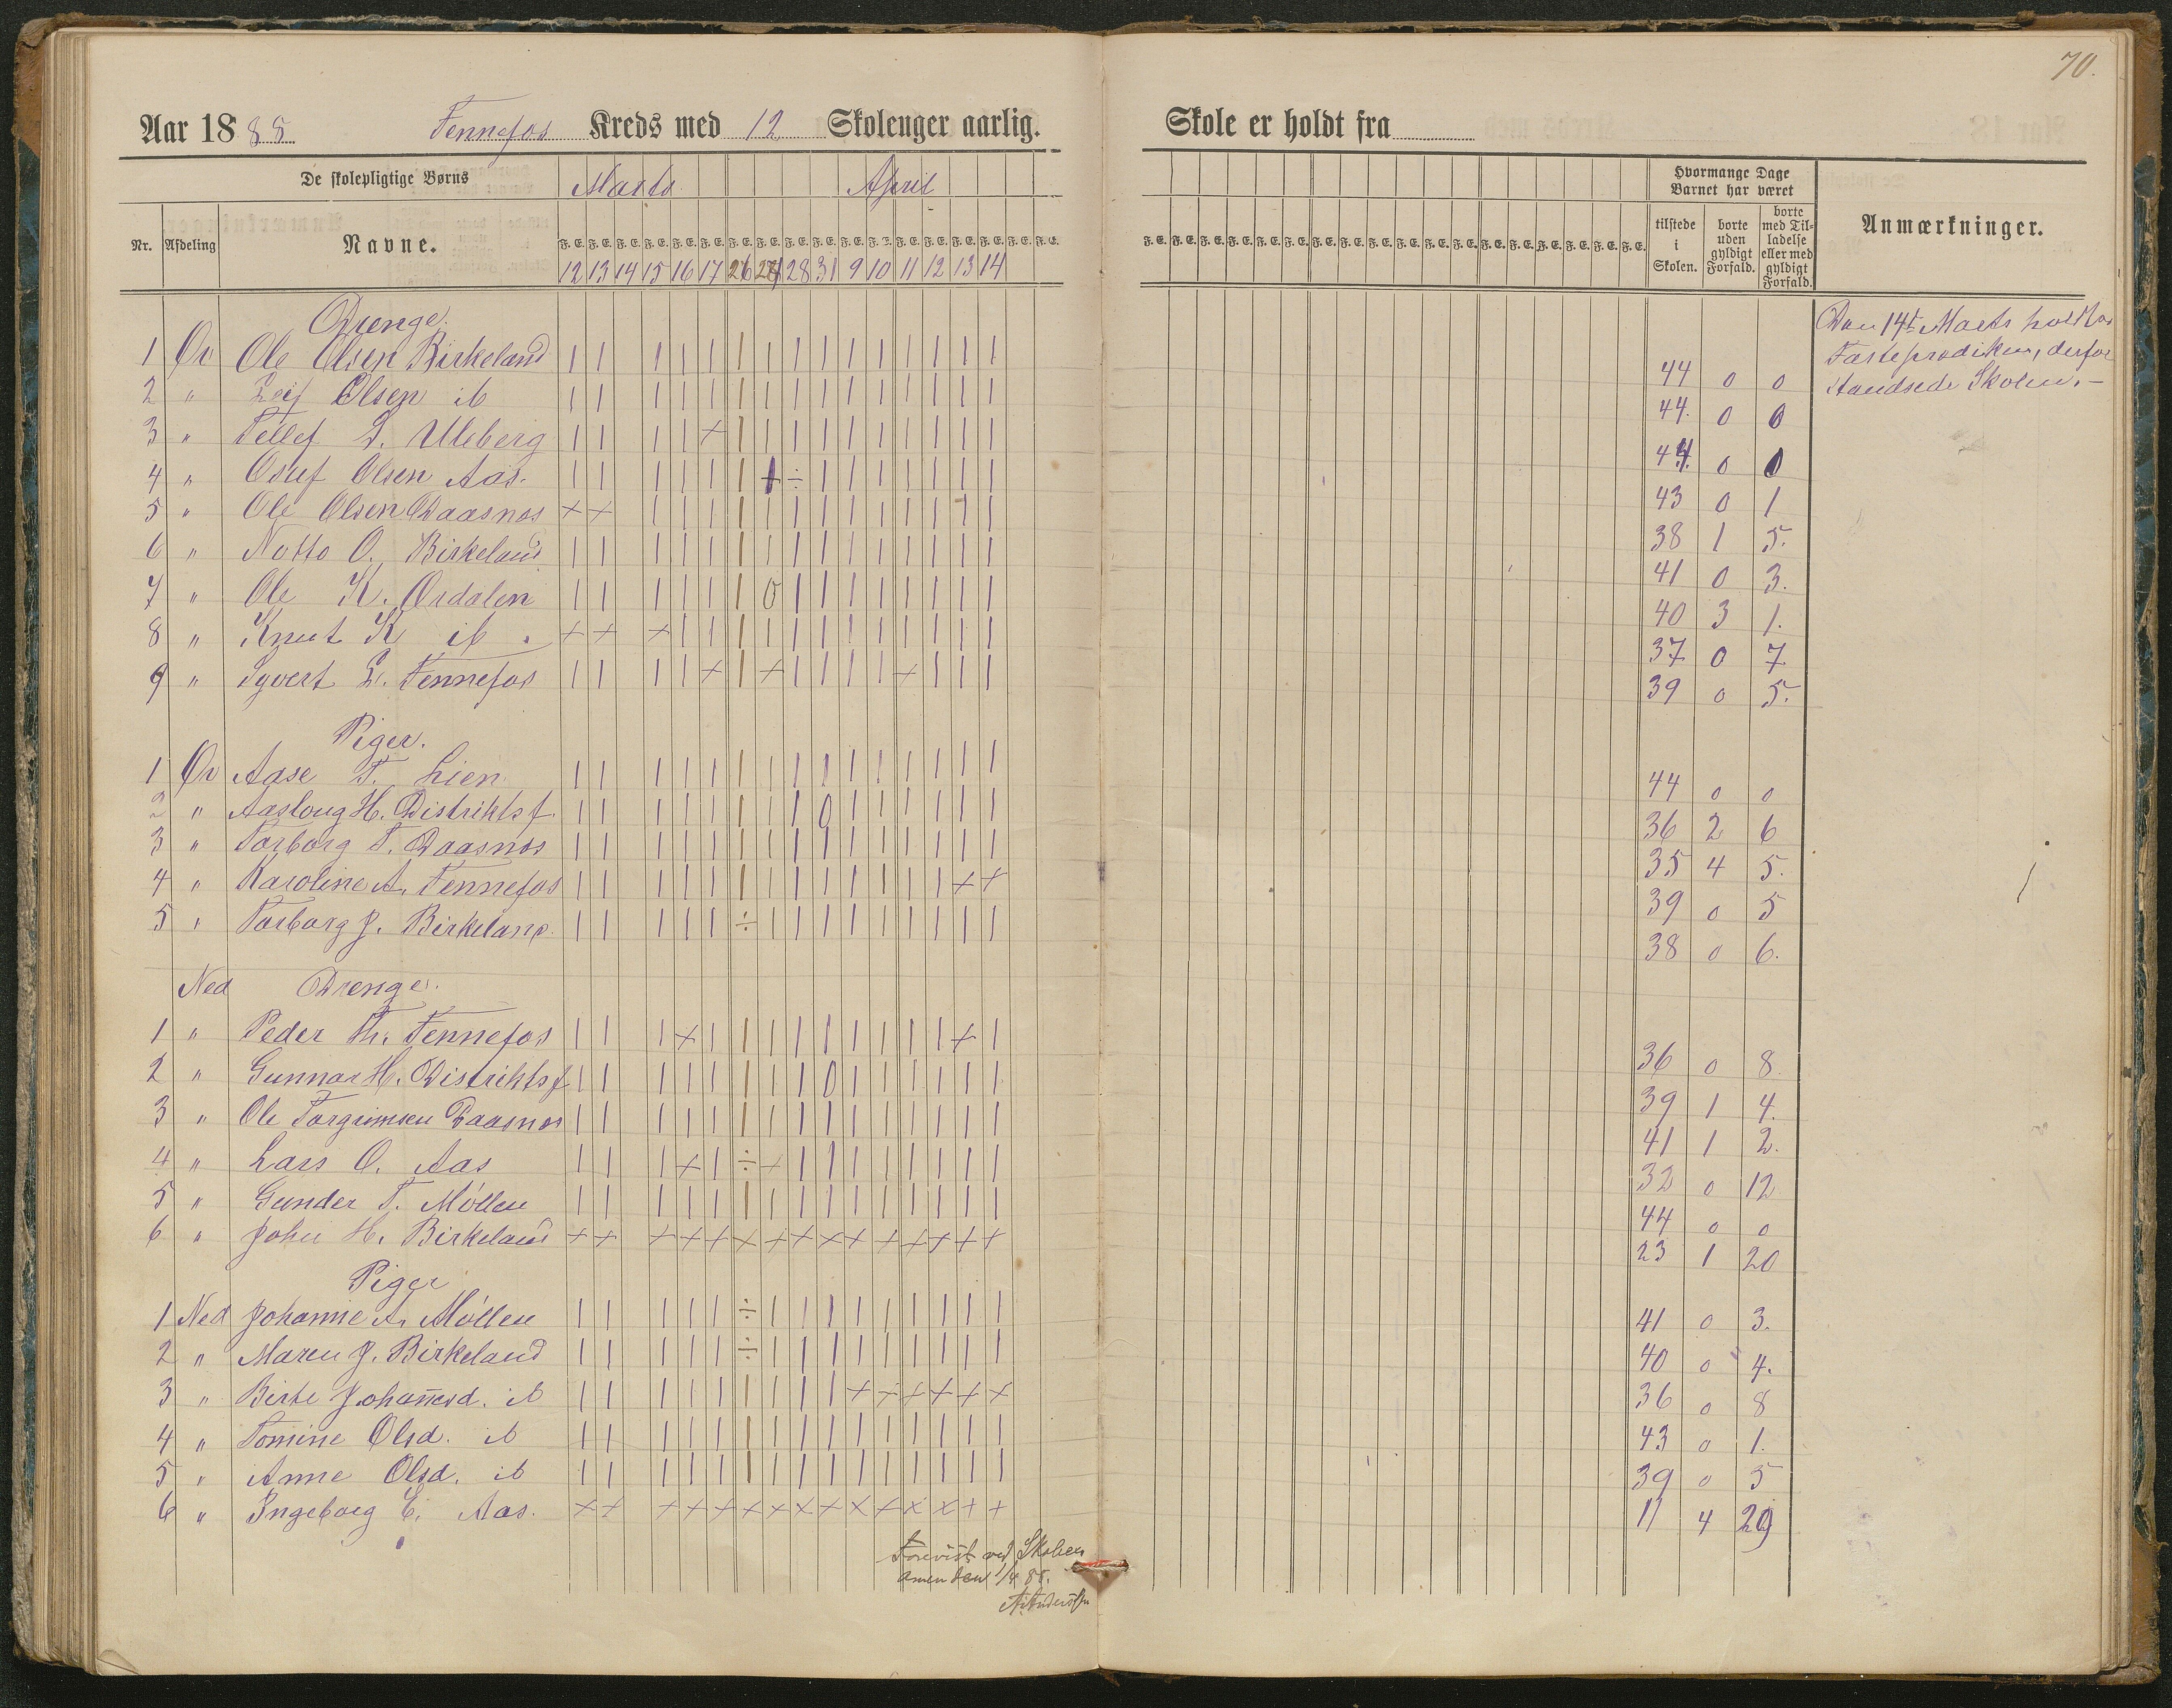 70.
Aar 1885 Fennefos Kreds med 12 Skoleuger aarlig. Skole er holdt fra
De skolepligtige Børns Marts April Hvormange Dage Barnet har været
Nr. Afdeling Navne. F. E. F. E. F. E. F. E. F. E. F. E. F. E. F. E. F. E. F. E. F. E. F. E. F. E. F. E. F. E. F. E. F. E. F. E. tilstede i Skolen. borte uden gyldigt Forfald. borte med Tilladelse eller med gyldigt Forfald. Anmærkninger.
12 13 14 15 16 17 26 27 28 31 9 10 11 12 13 14
Drenge.
1 Øv Ole Olsen Birkeland | | | | | | | | | | | | | | | 44 0 0
2 " Leif Olsen ib | | | | | | | | | | | | | | | 44. 0 0
3 " Tellef S. Uleberg | | | | + | | | | | | | | | | 44. 0 0
4 " Osuf Olsen Aas. | | | | | | + ÷ | | | | | | | 43 0 1
5 " Ole Olsen Daasnos + + | | | | | | | | | | | | | 38 1 5.
6 " Notto O. Birkeland | | | | | | | | | | | | | | | 41 0 3.
7 " Ole K. Ørdalen | | | | | | 0 | | | | | | | | 40 3 1.
8 " Knut K ib. + + + | | | | | | | | | | | | 37 0 7
9 " Syvert L. Fennefos | | | | + | + | | | | + | | | 39 0 5.
Piger.
1 Øv Aase T. Lien | | | | | | | | | | | | | | | 44 0 0
2 " Aasloug H. Distriktsf. | | | | | | | | 0 | | | | | | 36 2 6
3 " Torborg T. Daasnos | | | | | | | | | | | | | | | 35 4 5.
4 " Karoline A. Fennefos | | | | | | | | | | | | | + + 39 0 5
5 " Torborg J. Birkeland. | | | | | ÷ | | | | | | | | | 38 0 6.
Ned Drenge.
1 " Peder Th. Fennefos | | | + | | | | | | | | | + | 36 0 8
2 " Gunnar H. Distriktsf | | | | | | | | 0 | | | | | | 39 1 4.
3 " Ole Torgrimsen Daasnos | | | | | | | | | | | | | | | 41 1 2.
4 " Lars O. Aas | | | + | ÷ + | | | | | | | | 32 0 12
5 " Gunder T. Möllen | | | | | | | | | | | | | | | 44 0 0
6 " John H. Birkeland + + + + + + + + + + + + + + + 23 1 20
Piger
1 Ned Johanne A. Möllen | | | | | ÷ | | | | | | | | | 41 0 3.
2 " Maren J. Birkeland | | | | | ÷ | | | | | | | | | 40 0 4.
3 " Birte Johannesd. ib | | | | | | | | | + + + + + + 36 0 8
4 " Tomine Olsd. ib | | | | | | | | | | | | | | | 43 0 1.
5 " Anne Olsd. ib | | | | | | | | | | | | | | | 39 0 5
6 " Ingeborg E. Aas. + + + + + + + + + + + + + + + 11 4 29
Den 14de Marts holdtes
Fasteprædiken, derfor
standsede Skolen. –
Forevist ved Skolens